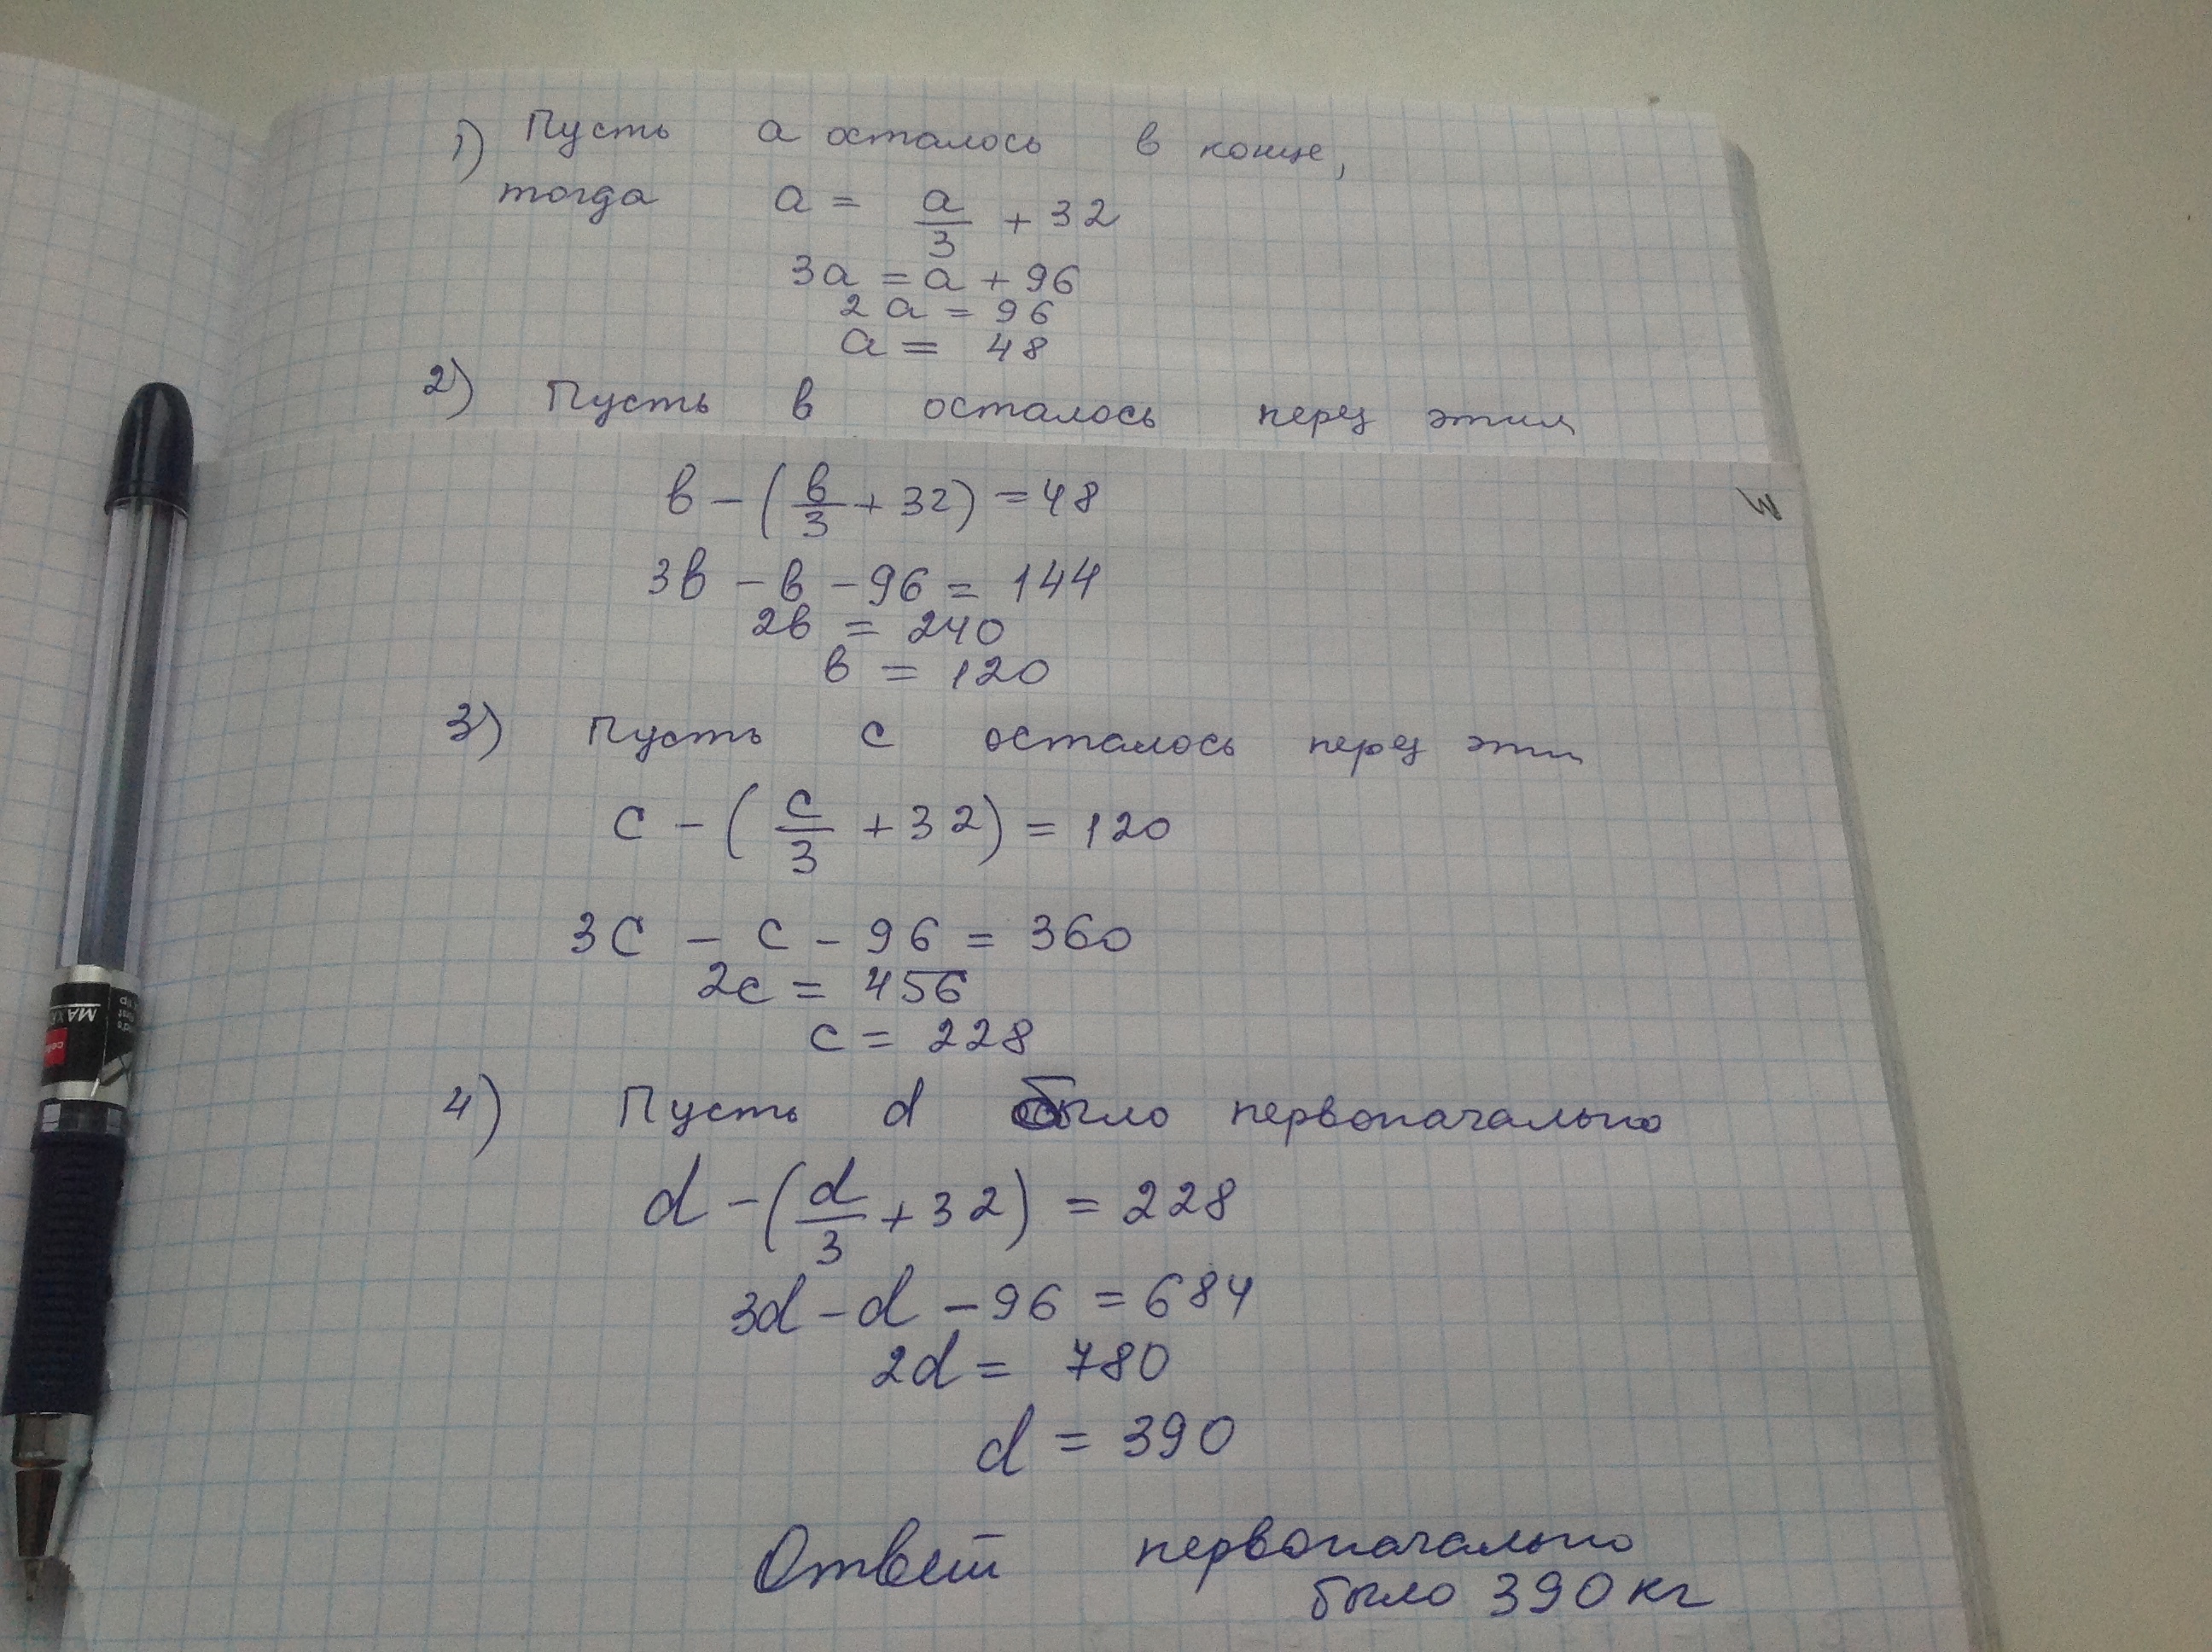 1) Пусть а осталось в конце,
тогда а = а/3 + 32
3а = а + 96
2а = 96
а = 48
2) Пусть в осталось перед этим
в - (в/3 + 32) = 48
3в - в - 96 = 144
2в = 240
в = 120
3) Пусть с осталось перед эти
с - (с/3 + 32) = 120
3с - с - 96 = 360
2с = 456
с = 228
4) Пусть d было первоначально
d - (d/3 + 32) = 228
3d - d - 96 = 684
2d = 780
d = 390
Ответ первоначально
было 390 кг